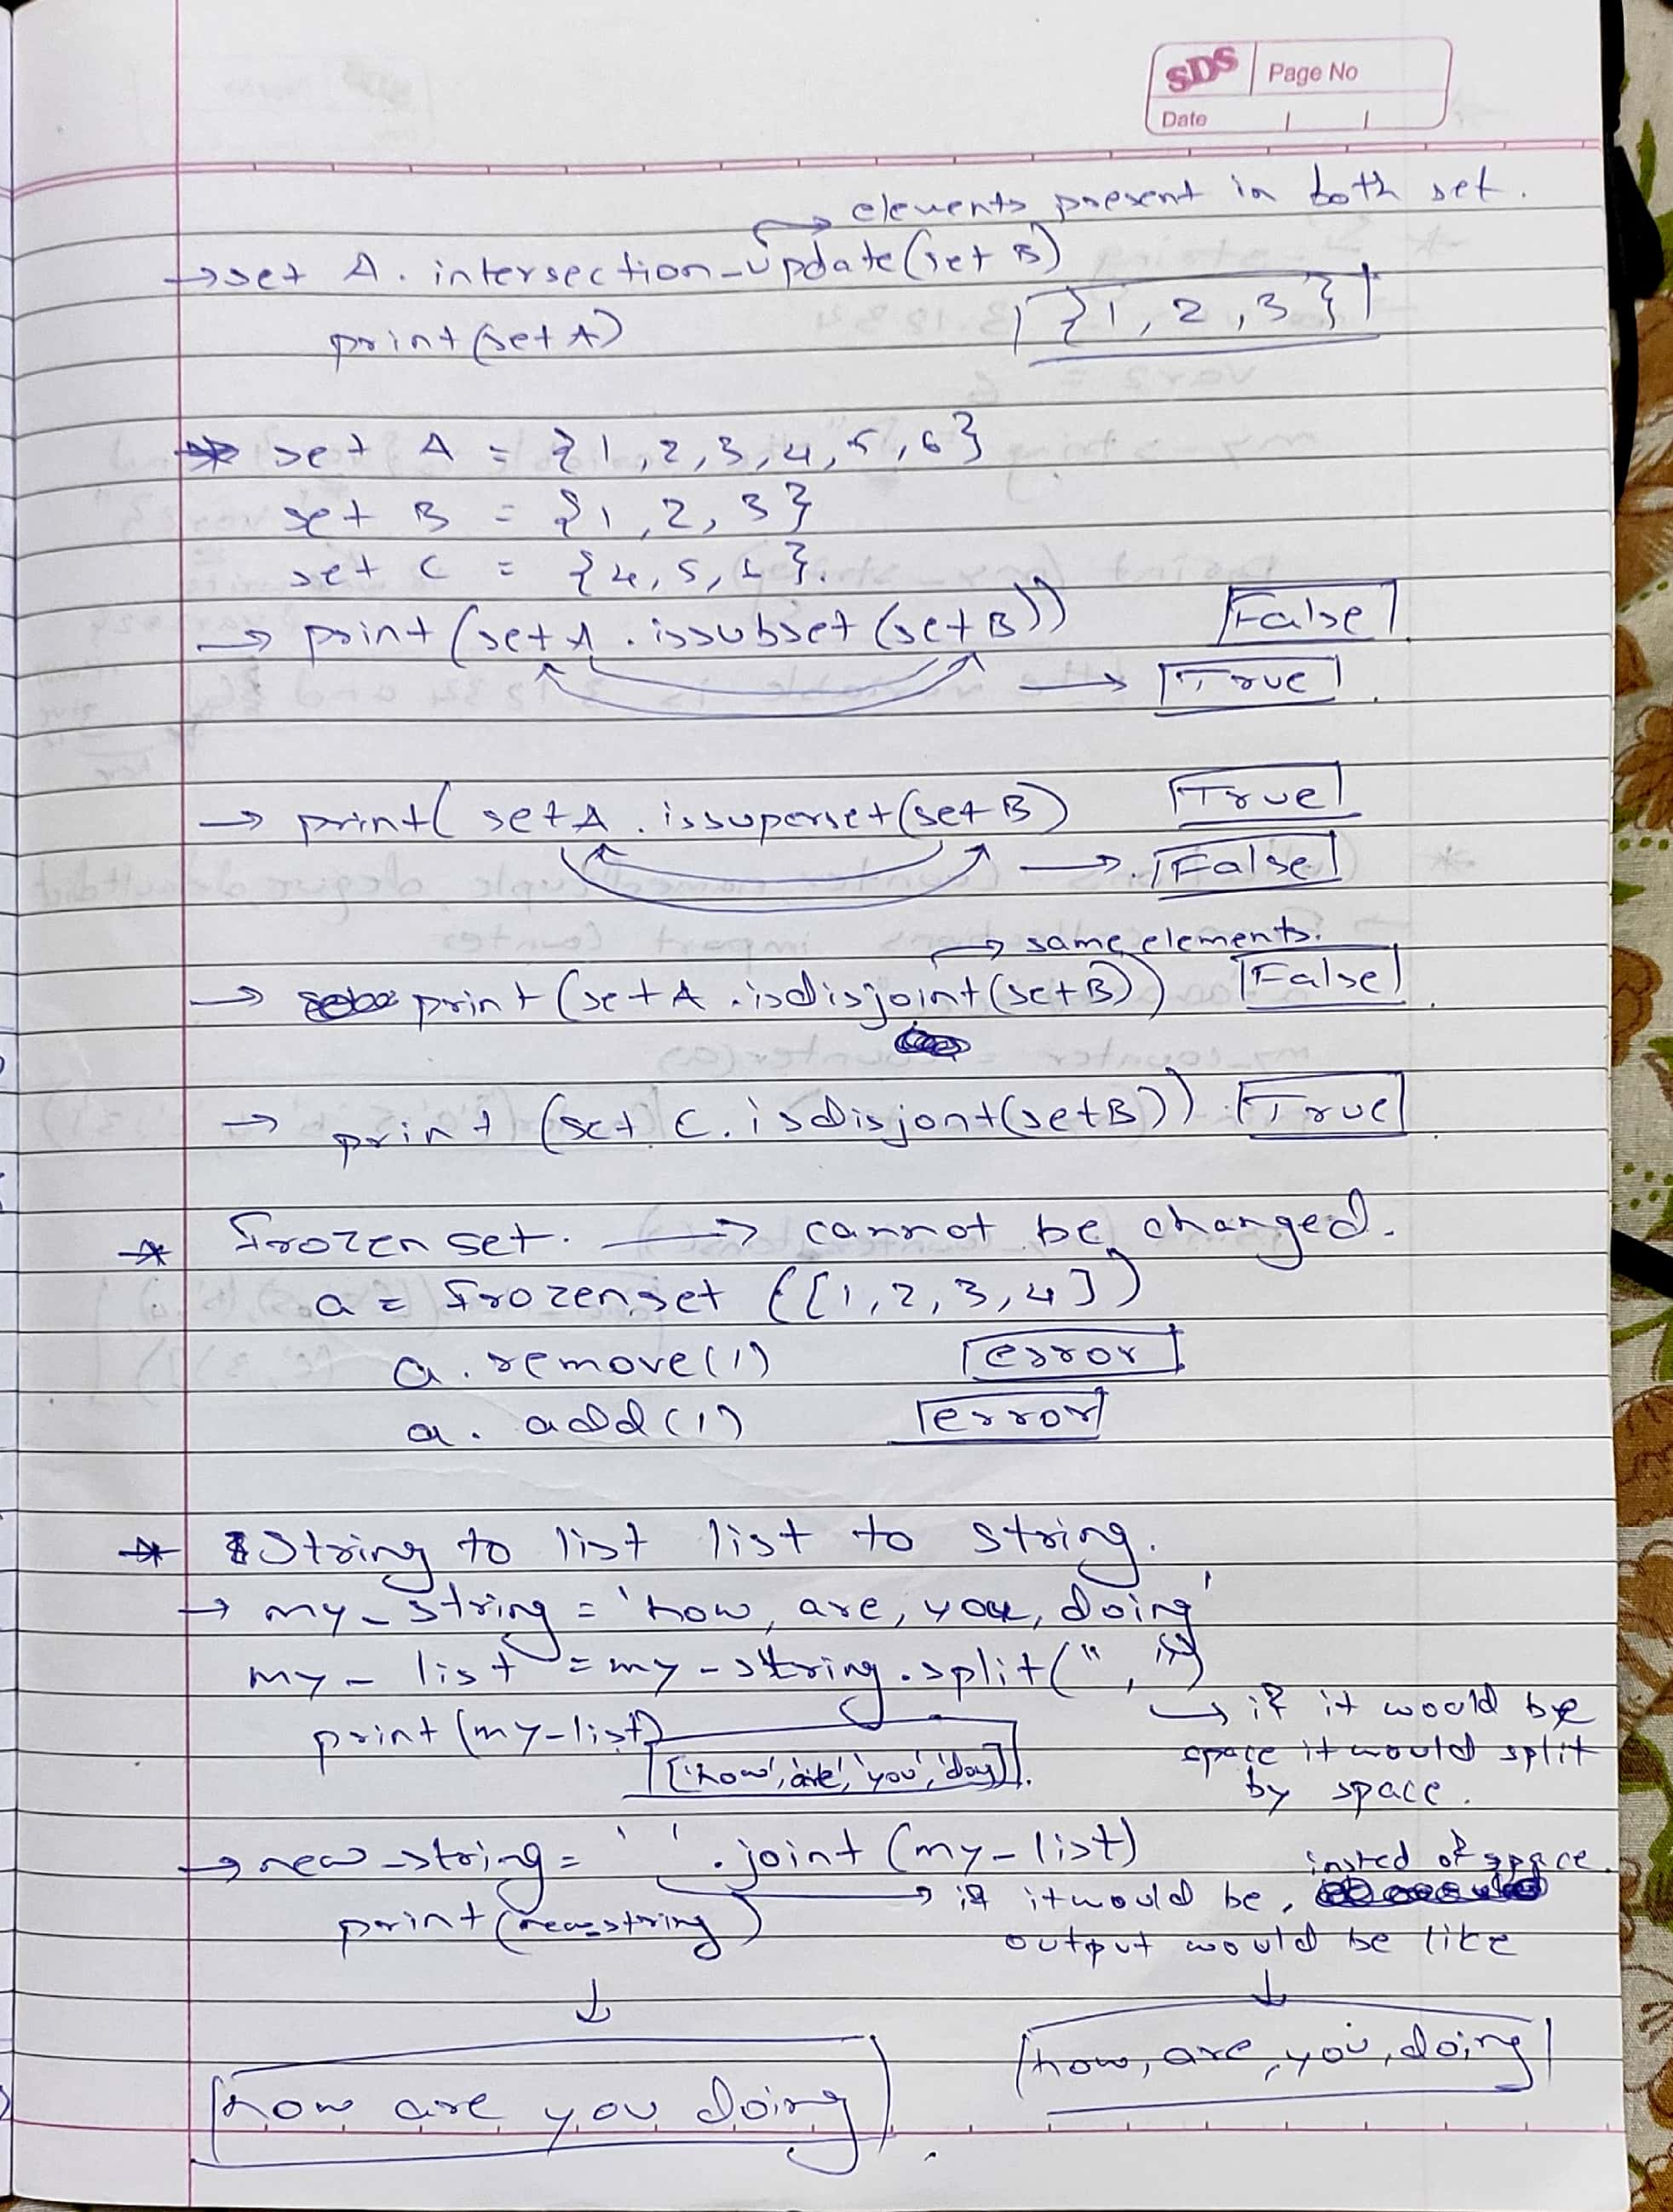 SDS Page No
Date
elements present in both set.
→ set A. intersection_update(set B)
print(set A) {1, 2, 3}
set A = {1, 2, 3, 4, 5, 6}
set B = {1, 2, 3}
set C = {4, 5, 6}.
→ print (set A . issubset (set B)) False
→ True
→ print( set A . issuperset(set B) True
→ False
→ same elements.
→ print (set A . isdisjoint (set B)) False
→ print (set C. isdisjont(set B)) True
* frozen set. → cannot be changed.
a = frozenset ([1, 2, 3, 4])
a. remove(1) error
a. add(1) error
* String to list list to string.
→ my_string = 'how, are, you, doing'
my_list = my_string.split(",")
print (my_list) → if it would be
['how', 'are', 'you', 'doy']. space it would split
by space.
→ new_string = ' ' . joint (my_list) insted of space.
print (new_string) → if it would be ,
output would be like
↓ ↓
how are you doing how, are, you, doing